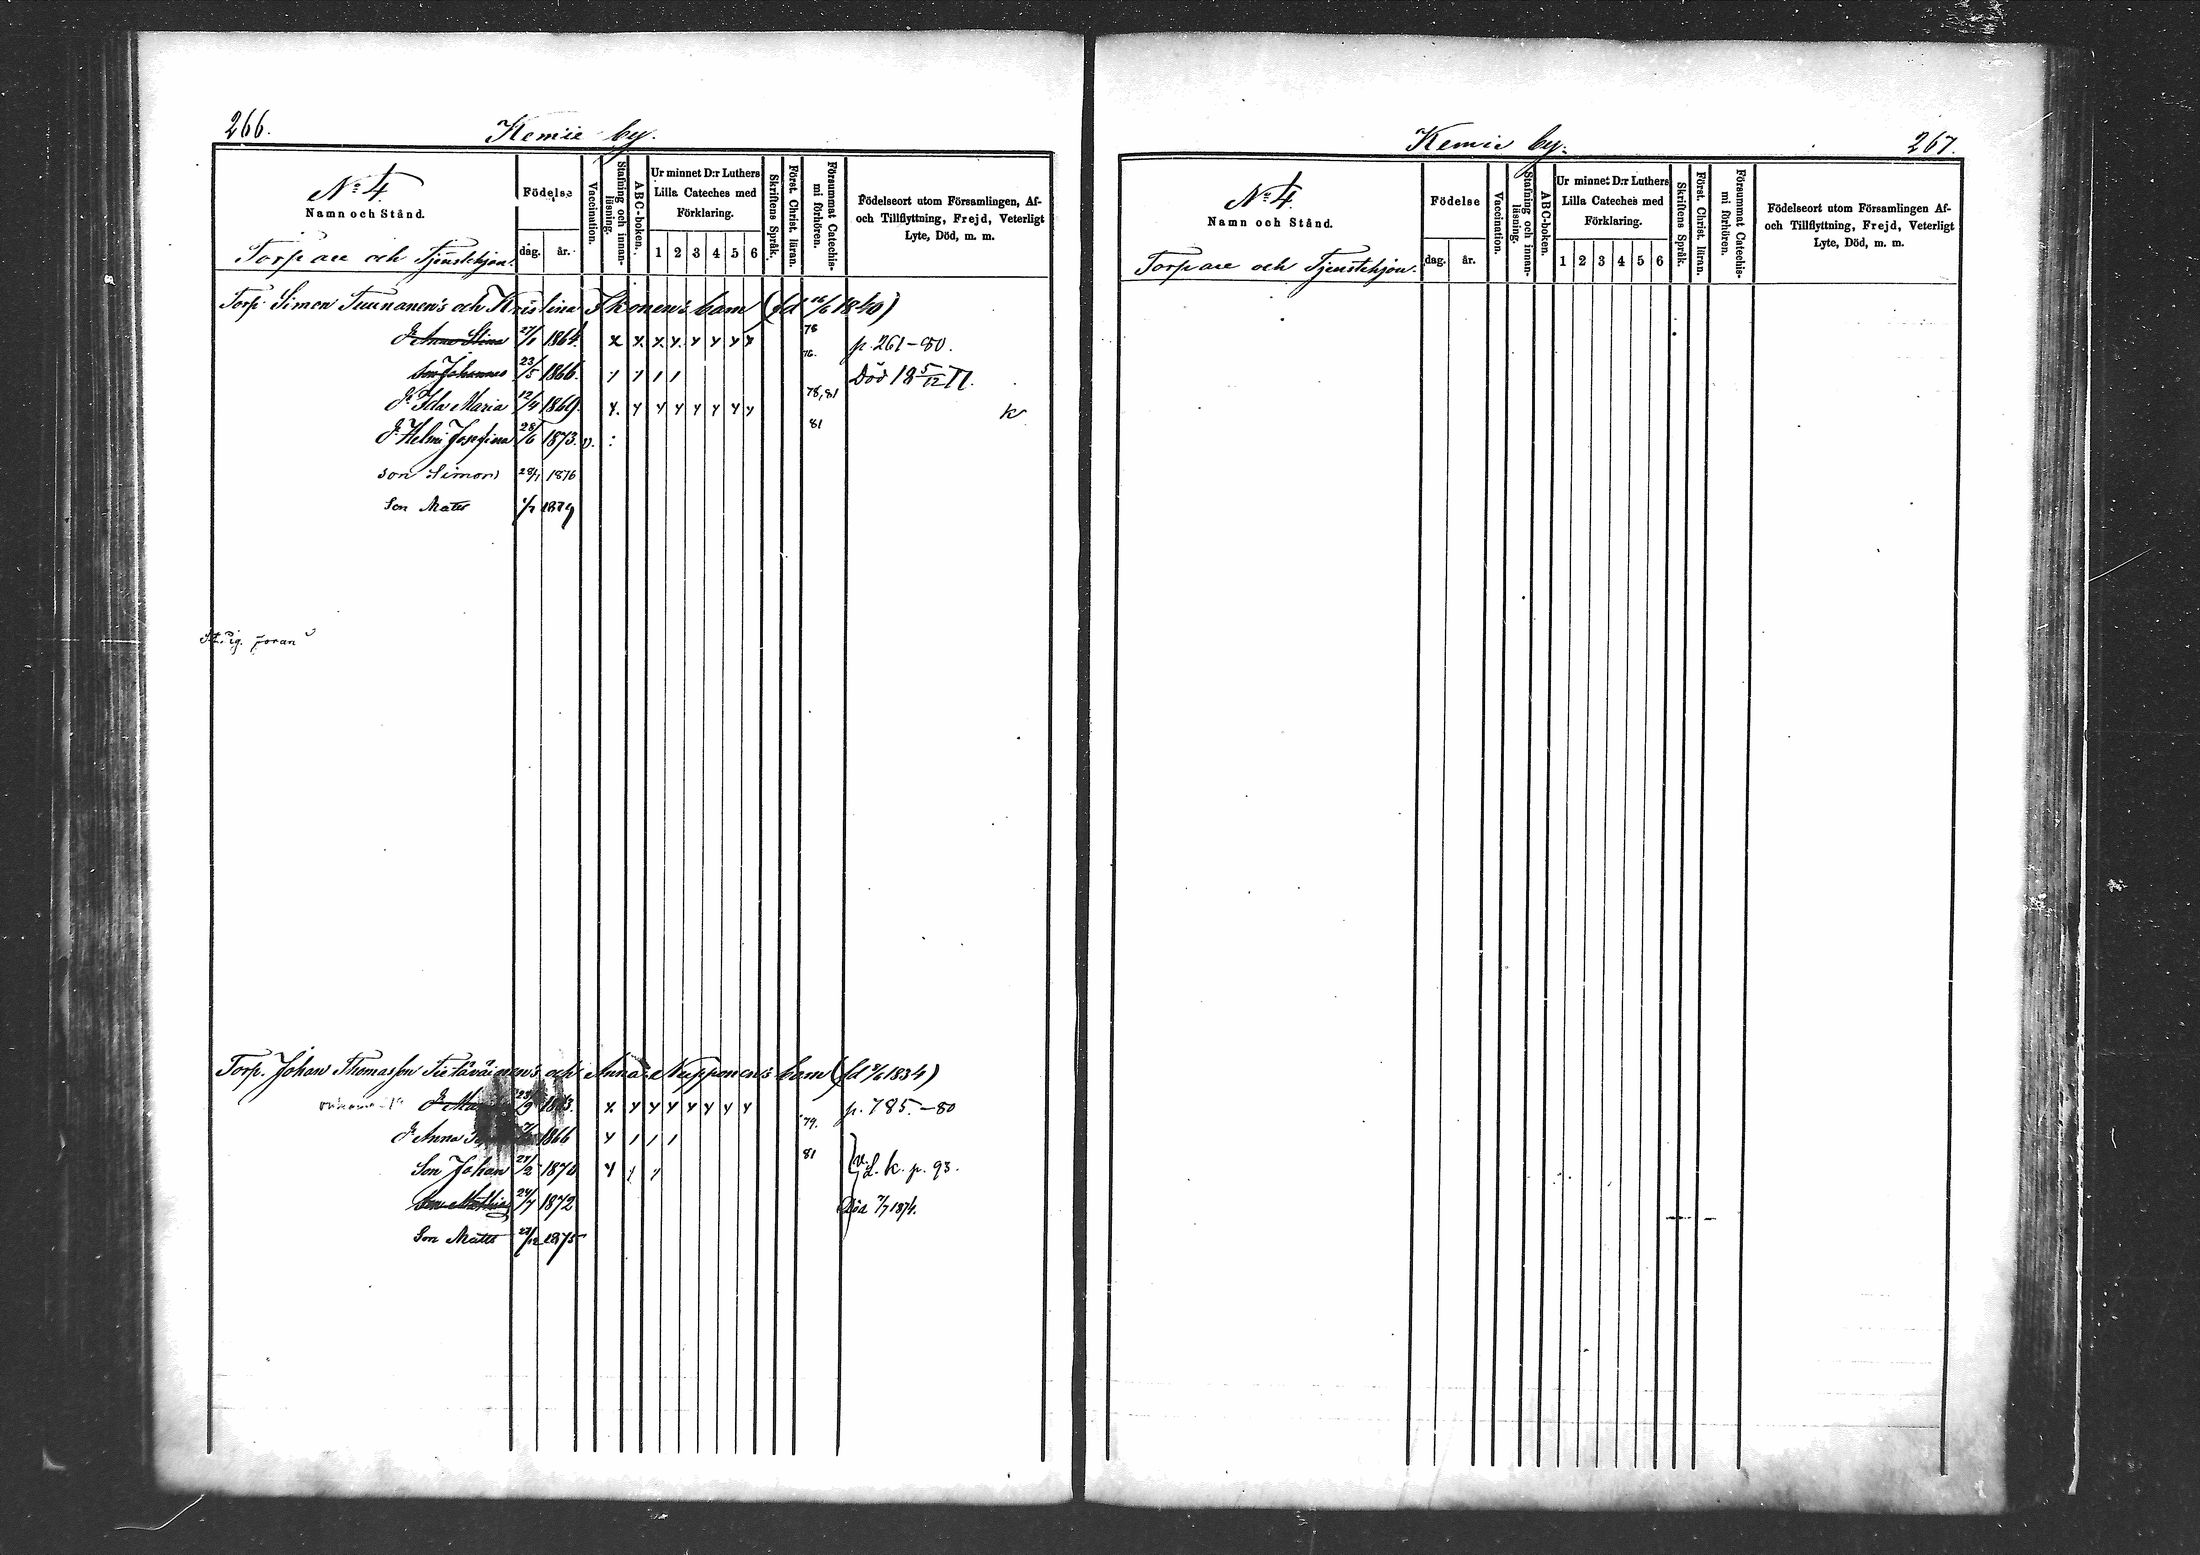 266.
Kemie by.
No 4.
Namn och Stånd.
Torpare och Tjenstehjon.
Födelse
dag. år.
Vaccination.
Stafning och innanläsning.
ABC-boken.
Ur minnet D:r Luthers
Lilla Cateches med
Förklaring.
1 2 3 4 5 6
Skriftens Språk.
Först. Christ. läran.
Försummat Catechismi förhören.
Födelseort utom Församlingen, Af-
och Tillflyttning, Frejd, Veterligt
Lyte, Död, m. m.
Torp. Simon Tuunanen's och Kristina Ikonen's barn (fd 16/6 1840)
d. Anna Stina 27/1 1864. x x x x x x x x 78 p. 261-80.
Son Johannes 23/5 1866. / / / / 76. Död 18 5/12 77.
d. Ida Maria 12/4 1869. x x x x x x x x 78, 81 k
d. Helmi Josefina 28/6 1873. v. : 81
son Simon 28/1 1876
Son Mats 1/7 1879
Torp. Johan Thomasson Tietäväinen's och Anna Nupponen's barn (fd 9/6 1834)
23/9 1863. x x x x x x x x p. 785.-80
d. Anna 1866 x / / / 79.
Son Johan 21/2 1870 x / / 81 L. k. p. 93.
Son Mathias 24/7 1872 Död 7/7 1874.
Son Mats 21/12 1875
Kemie by.
267.
No 4.
Namn och Stånd.
Torpare och Tjenstehjon.
Födelse
dag. år.
Vaccination.
Stafning och innanläsning.
ABC-boken.
Ur minnet D:r Luthers
Lilla Cateches med
Förklaring.
1 2 3 4 5 6
Skriftens Språk.
Först. Christ. läran.
Försummat Catechismi förhören.
Födelseort utom Församlingen Af-
och Tillflyttning, Frejd, Veterligt
Lyte, Död, m. m.